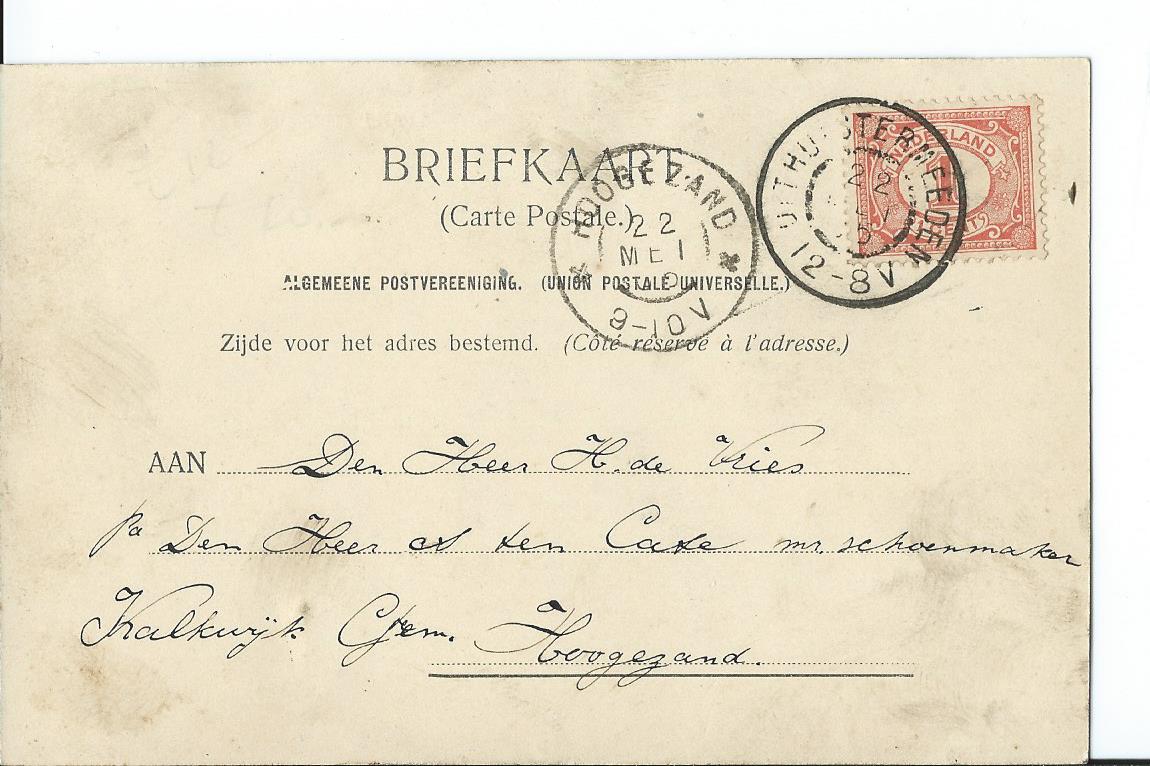 BRIEFKAART
(Carte Postale.)
ALGEMEENE POSTVEREENIGING. (UNION POSTALE UNIVERSELLE.)
Zijde voor het adres bestemd. (Côté réservé à l'adresse.)
HOOGEZAND
22
MEI
9-10V
UITHUISTERMEEDEN
22
12-8V
NEDERLAND
1
CENT
AAN Den Heer H. de Vries
pa Den Heer A ten Cate mr. schoenmaker
Kalkwijk Gem. Hoogezand.